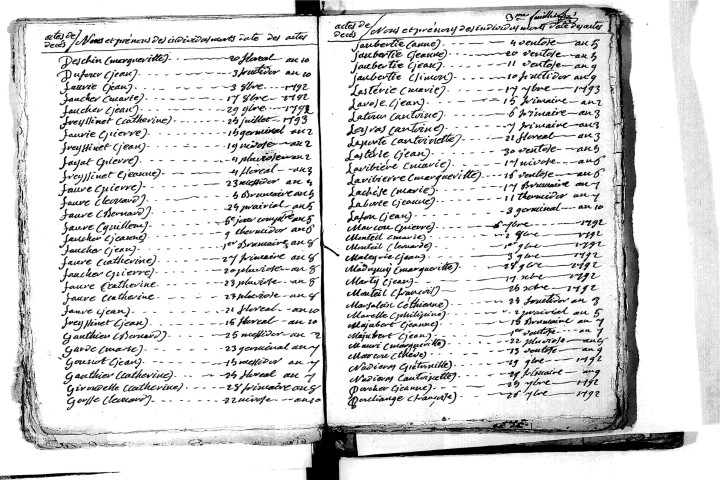 actes de deces Noms et prénoms des individus morts date des actes
Deschin (marqueritte) 20 floreal an 10
Dufour (jean) 3 fructidor an 10
faurie (jean) 3 9bre 1792
faucher (marie) 17 9bre 1792
faucher (jean) 29 9bre 1792
freyssinet (catherine) 28 juillet 1793
faurie (pierre) 18 germinal an 2
freyssinet (jean) 19 nivose an 2
fayat (pierre) 4 pluviose an 2
freyssinet (jeanne) 4 floreal an 3
faure (pierre) 23 messidor an 4
faure (leonard) 6 Brumaire an 5
faure (Bernard) 24 prairial an 5
faure (guillou) 5e jour compte an 5
faucher (jeanne) 9 thermidor an 6
faucher (jean) 1er Brumaire an 8
faure (catherine) 27 frimaire an 8
faucher (pierre) 20 pluviose an 8
faure (catherine 23 pluviose an 8
faure (catherine 23 pluviose an 8
faure (jean) 21 floreal an 10
freyssinet (jean) 16 floreal an 10
Gauthier (Bernard) 25 messidor an 2
Garde (marie) 23 germinal an 7
Goursat (jean) 15 messidor an 7
Gauthier (catherine) 25 floreal an 7
Girondelle (catherine) 28 frimaire an 8
Gorsse (leonard) 22 nivose an 10
3me feuillet
actes de deces Noms et prénoms des individus morts date des actes
Jaubertie (anne) 4 ventose an 5
Jaubertie (jeanne) 20 ventose an 5
Jaubertie (jean) 11 ventose an 9
Jaubertie (simon) 10 fructidor an 9
Lasterie (marie) 17 9bre 1793
Lavose (jean) 15 frimaire an 2
Latour (antoine) 6 frimaire an 3
Leyras (antoine) 7 frimaire an 3
Laporte (antoinette) 21 floreal an 3
Lasterie (jean) 30 ventose an 5
Laribiere (marie) 17 nivose an 6
Laribierre (marqueritte) 16 ventose an 6
Lachese (marie) 17 Brumaire an 7
Laborie (jeanne) 11 thermidor an 7
Lafon (jean) 3 germinal an 10
Marcou (pierre) 9bre 1792
Monteil (marie) 1792
Monteil (leonard) 1er 9bre 1792
Maleyrie (jean) 3 9bre 1792
Madupuy (marqueritte) 28 9bre 1792
Marty (jean) 17 xbre 1792
Monteil (francois) 26 xbre 1792
Marsaloix (ethienne) 28 fructidor an 3
Morelle (philipine) 2 prairial an 5
Majubert (jeanne) 18 Brumaire an 7
Majubert (jean) ventose an 7
Mauri (marqueritte) 22 pluviose an 9
Nadiers (antoinette)
Porcher (jeanne) 25 9bre 1792
26 9bre 1792